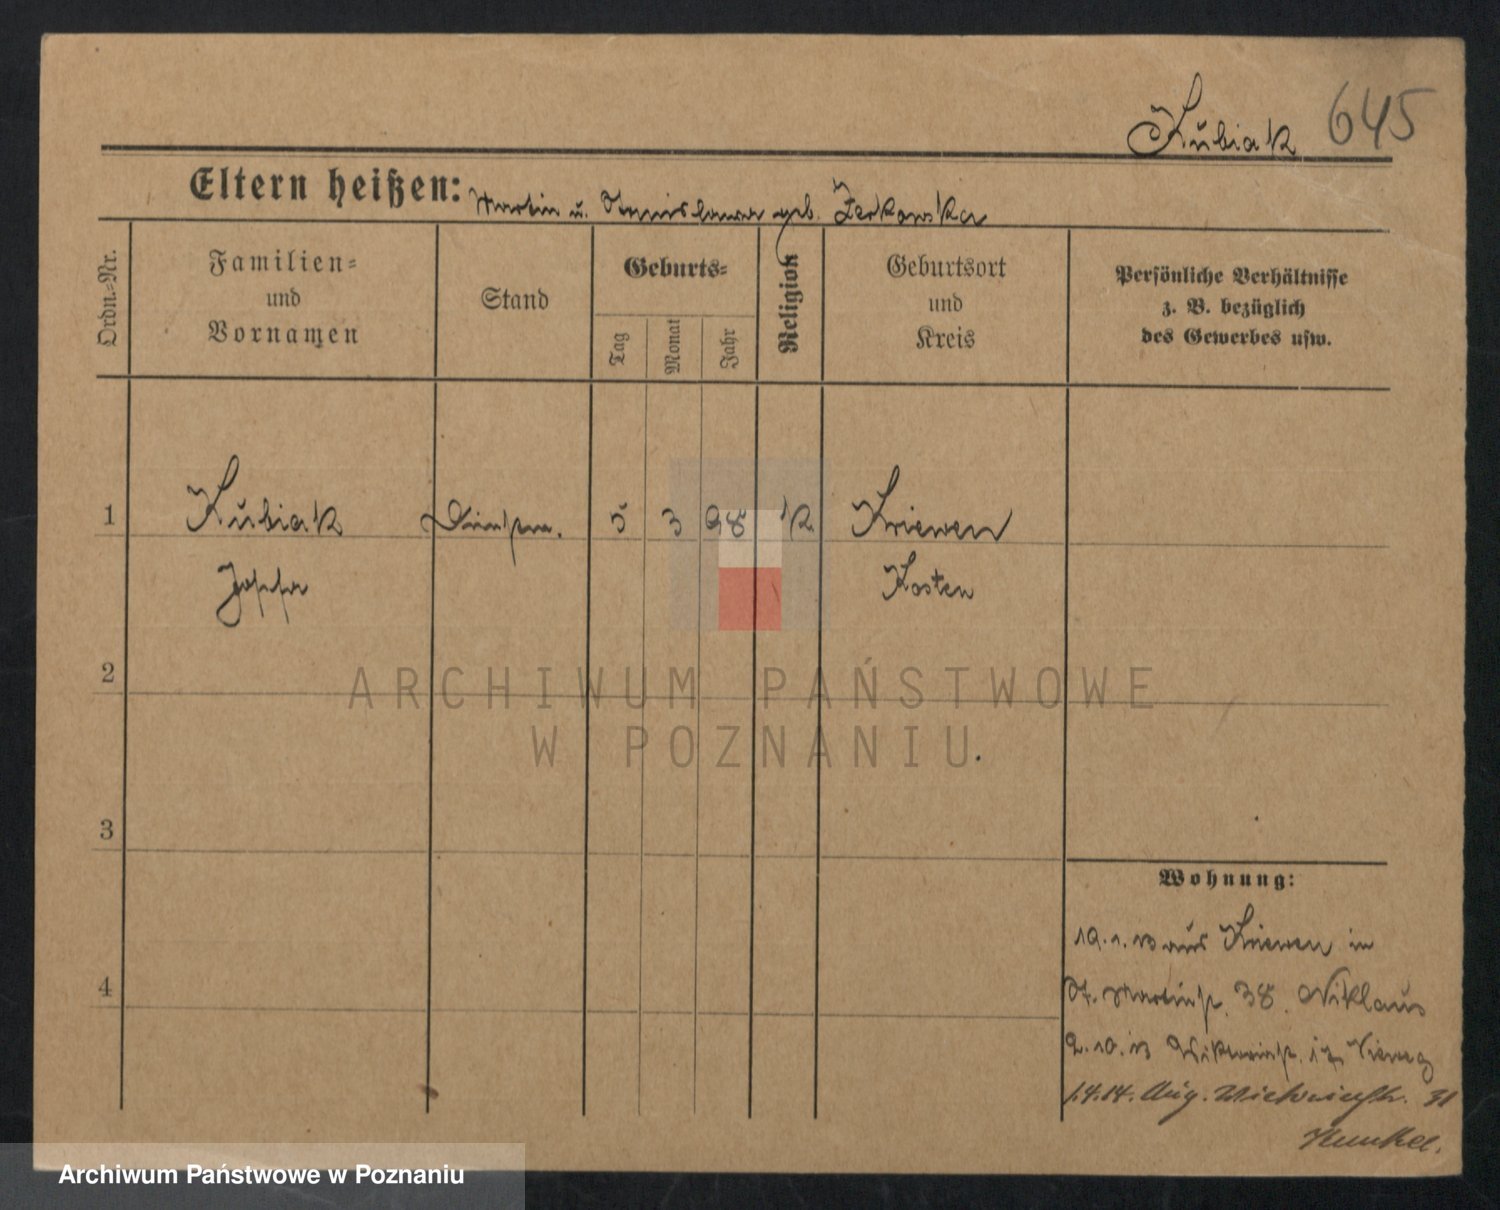 Kubiak 645
Eltern heißen: Martin u. Stanislawa geb. Zerkowska
Ordn.-Nr.
Familien-
und
Vornamen
Stand
Geburts-
Tag
Monat
Jahr
Religion
Geburtsort
und
Kreis
Persönliche Verhältnisse
z. B. bezüglich
des Gewerbes usw.
1 Kubiak 5 3 98 k. Kriewen
Josefa Kosten
2
3
4
ARCHIWUM PAŃSTWOWE
W POZNANIU
Wohnung:
19.1.13 aus Kriewen in
St. Martinstr. 38. Niklaus
2.10.13 17 Vieweg
1.4.14. Aug. Viktoriastr. 31
Kunkel.
Archiwum Państwowe w Poznaniu